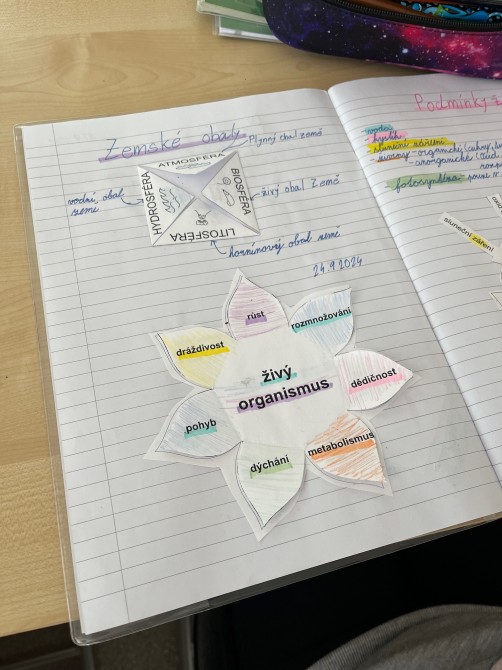 Zemské obaly
Plynný obal země
ATMOSFÉRA
BIOSFÉRA
HYDROSFÉRA
LITOSFÉRA
vodní obal
země
živý obal Země
horninový obal země
24.9.2024
růst
rozmnožování
dráždivost
dědičnost
živý
organismus
pohyb
metabolismus
dýchání
Podmínky ž
vzduch
kyslík
sluneční záření
organické (cukry,
anorganické
fotosyntéza
sluneční záření